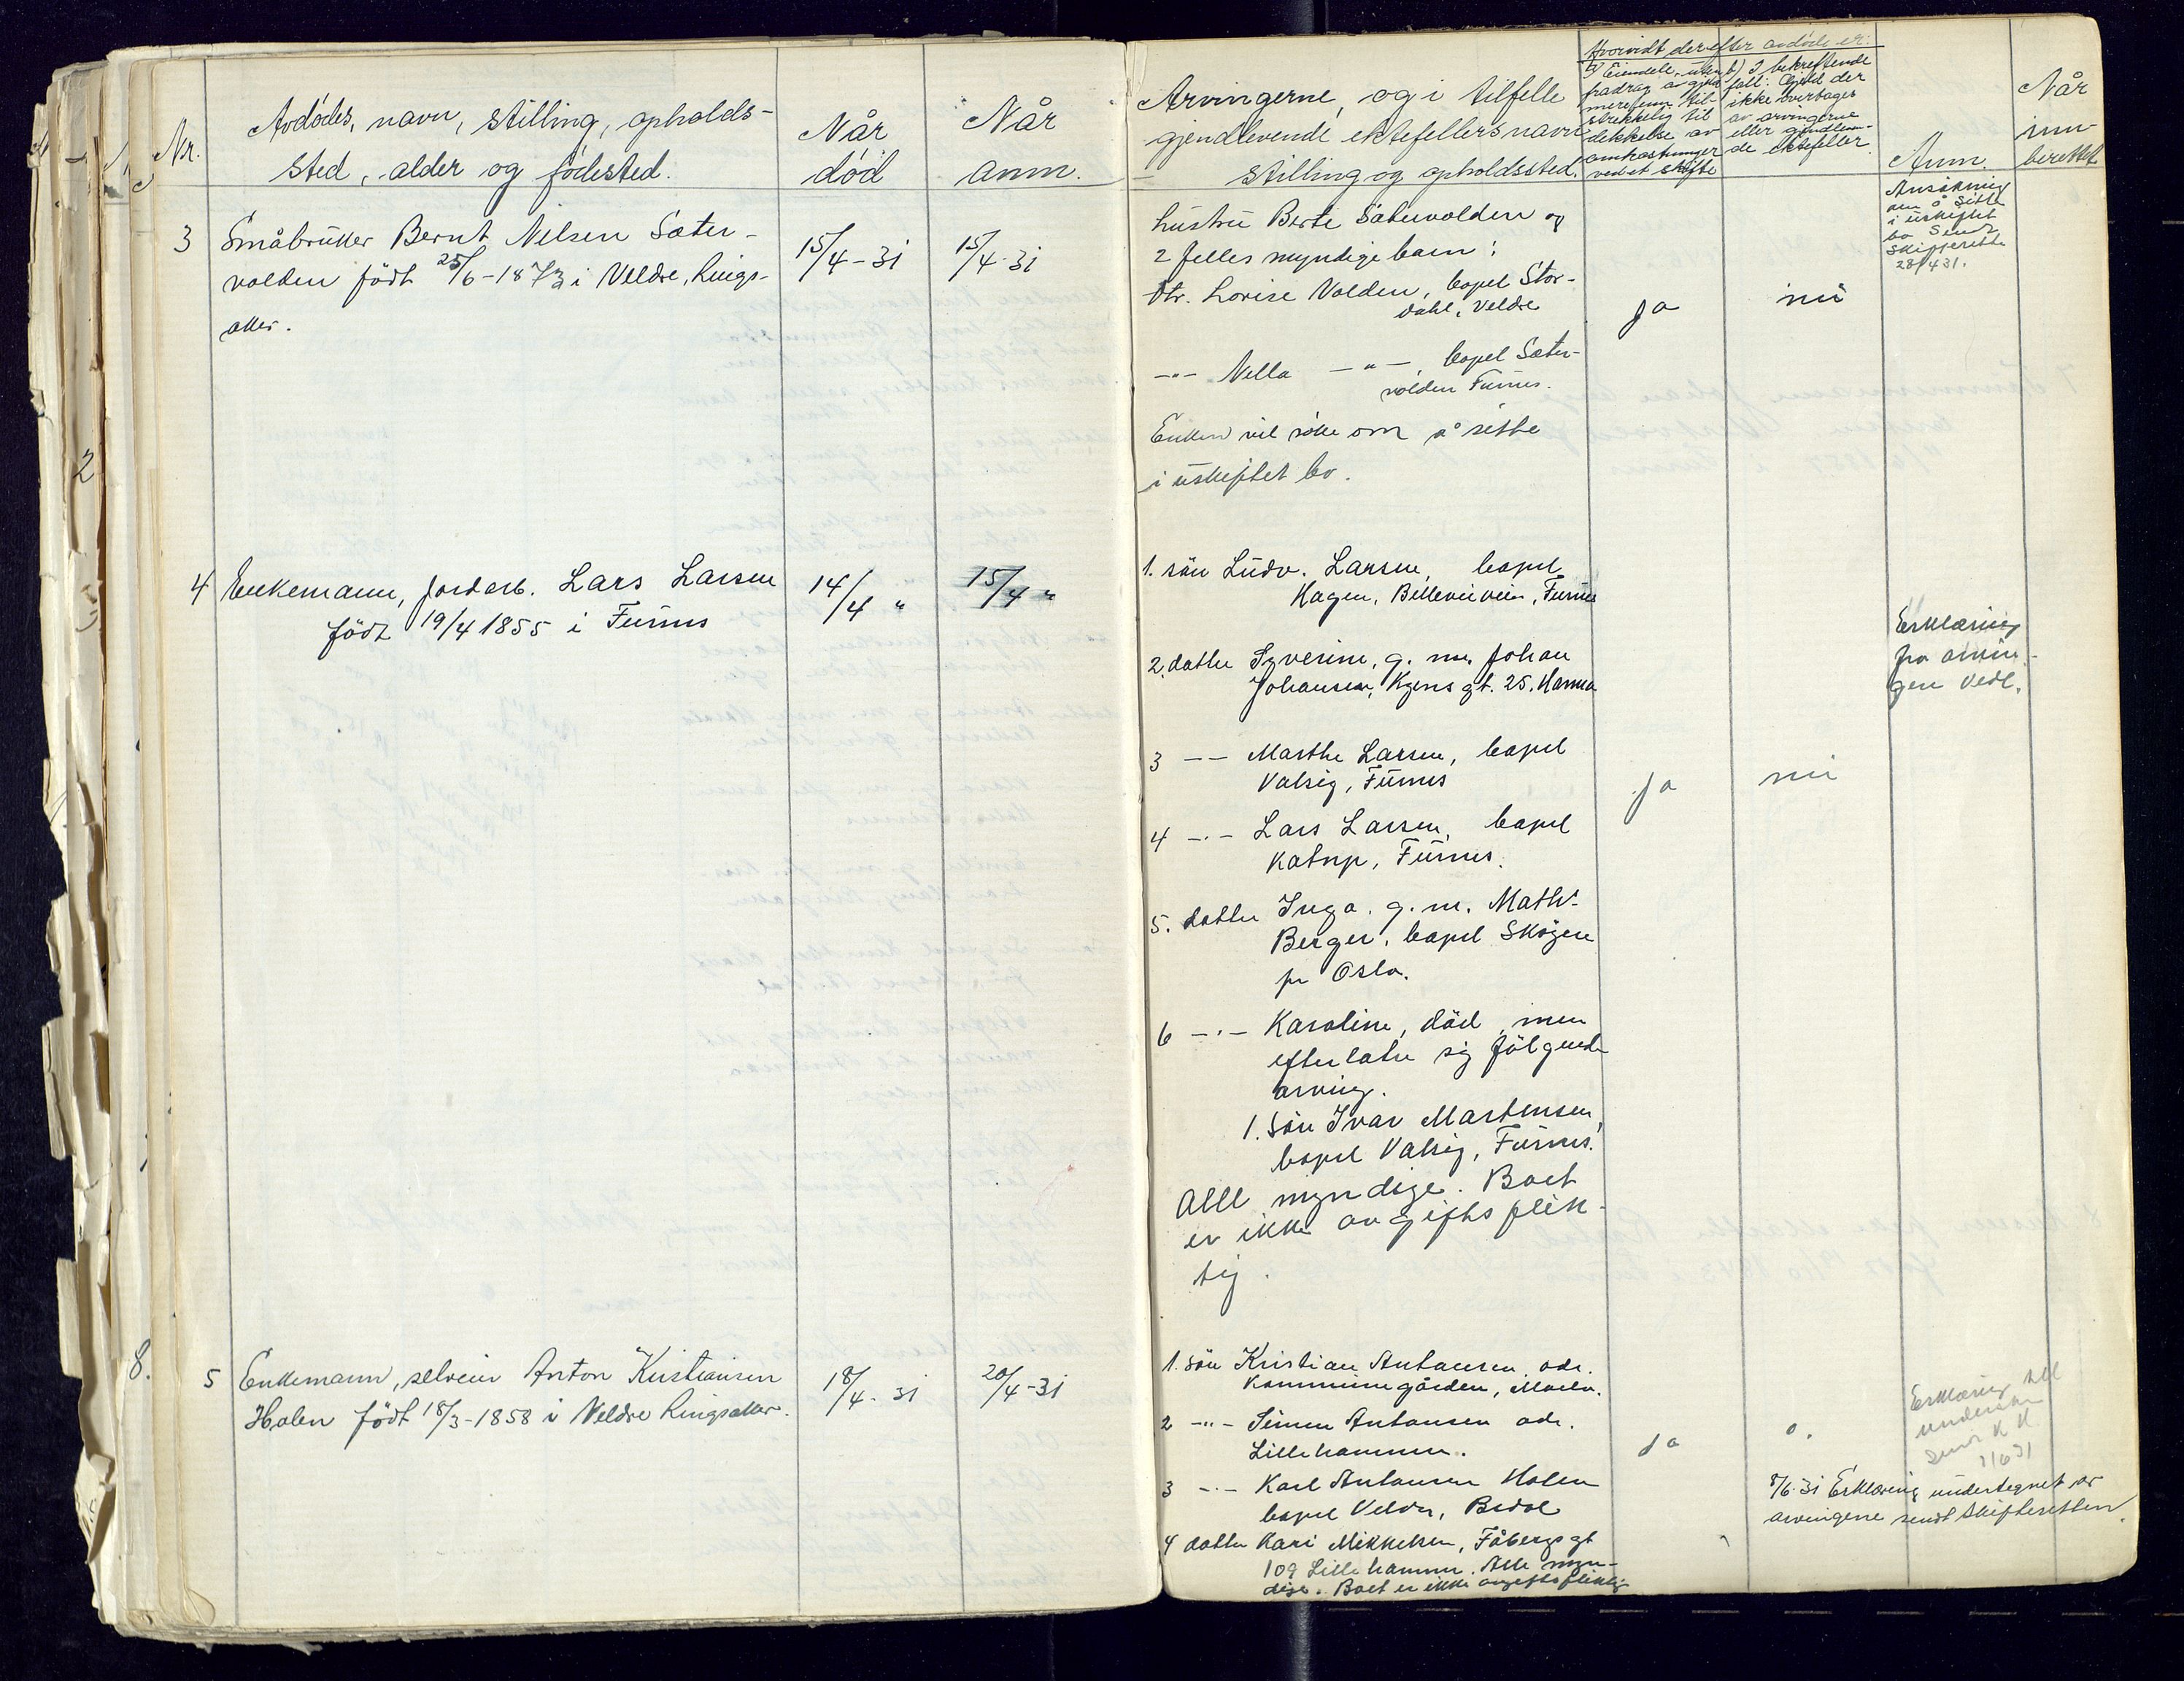 Nr.
Avdødes, navn, stilling, opholds-
sted, alder og fødested.
Når
død
Når
anm.
Arvingerne, og i tilfelle
gjenlevende ektefellers navn
stilling og opholdssted.
Hvorvidt derefter avdøde er:
a) Eiendele, uten
fradrag a gjeld
mere enn til-
strekkelig til
dekkelse av
omkostninger
ved et skifte
b) I bekreftende
fall: Gjeld der
ikke overtages
av arvingerne
eller gjenleven-
de ektefeller
Anm.
Når
inn-
berettet
3
Småbruker Bernt Nilsen Sæter-
volden født 25/6-1873 i Veldre, Rings-
aker.
15/4-31
15/4-31
hustru Berte Sætervolden og
2 felles myndige barn:
Dtr. Lovise Volden, bopel Stor-
dahl, Veldre
-"- Nella -"-, bopel Sæter-
volden Furnes.
Enken vil søke om å sitte
i uskiftet bo.
ja
nei
Ansøkning
om å sitte
i uskiftet
bo sendt
Skifteretten
28/4 31.
4
Enkemann, jordarb. Lars Larsen
født 19/4 1855 i Furnes
14/4 "
15/4 "
1. søn Ludv. Larsen, bopel
Hagen, Bellevueveien, Furnes
2. datter Syverine, g. m. Johan
Johansen, Kgens gt. 25. Hamar
3 -- Marthe Larsen, bopel
Valsig, Furnes
4 -.- Lars Larsen, bopel
Katrup, Furnes.
5. datter Inga. g. m. Math.
Berger, bopel Skøyen
pr Oslo.
6 -.- Karoline, død, men
efterlater sig følgende
arving.
1. søn Ivar Martinsen,
bopel Valsig, Furnes.
Alle myndige. Boet
er ikke avgiftsplik-
tig.
ja
nei
Erklæring
fra arvin-
gen vedl.
8.
5
Enkemann, selveier Anton Kristiansen
Holen født 18/3-1858 i Veldre Ringsaker.
18/4-31
20/4-31
1. søn Kristian Antonsen, adr.
Kommunegården, Moelv.
2 -"- Simen Antonsen adr.
Lillehammer.
3 -.- Karl Antonsen Holen
bopel Veldre, Brdal
4 datter Kari Mikkelsen, Fåbergs gt
109 Lillehammer. Alle myn-
dige. Boet er ikke avgiftspliktig
ja
o.
Erklæring till
underskr
sendt K K
1/6 31
8/6-31 Erklæring undertegnet av
arvingene sendt Skifteretten.
2